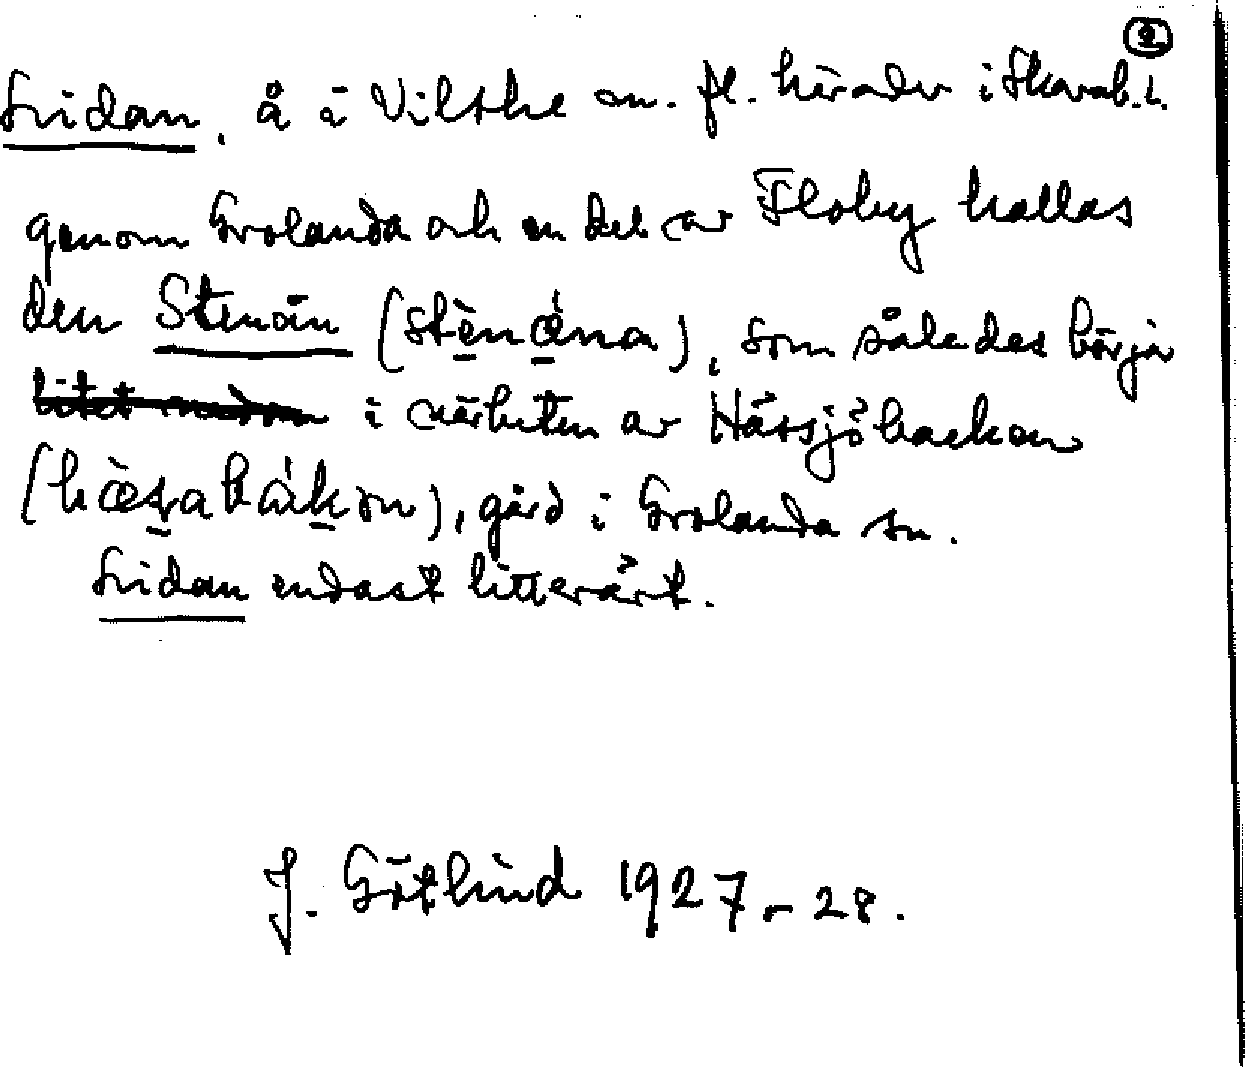 ②
Lidan, å i Vilske m. fl. härader i Skarab. l.
genom Grolanda och en del av Floby kallas
den Stenån (stènána), som således börja
litet nedom i närheten av Hässjöbacken
(hæ̀sabákən), gård i Grolanda sn.
Lidan endast litterärt.
J. Götlind 1927-28.